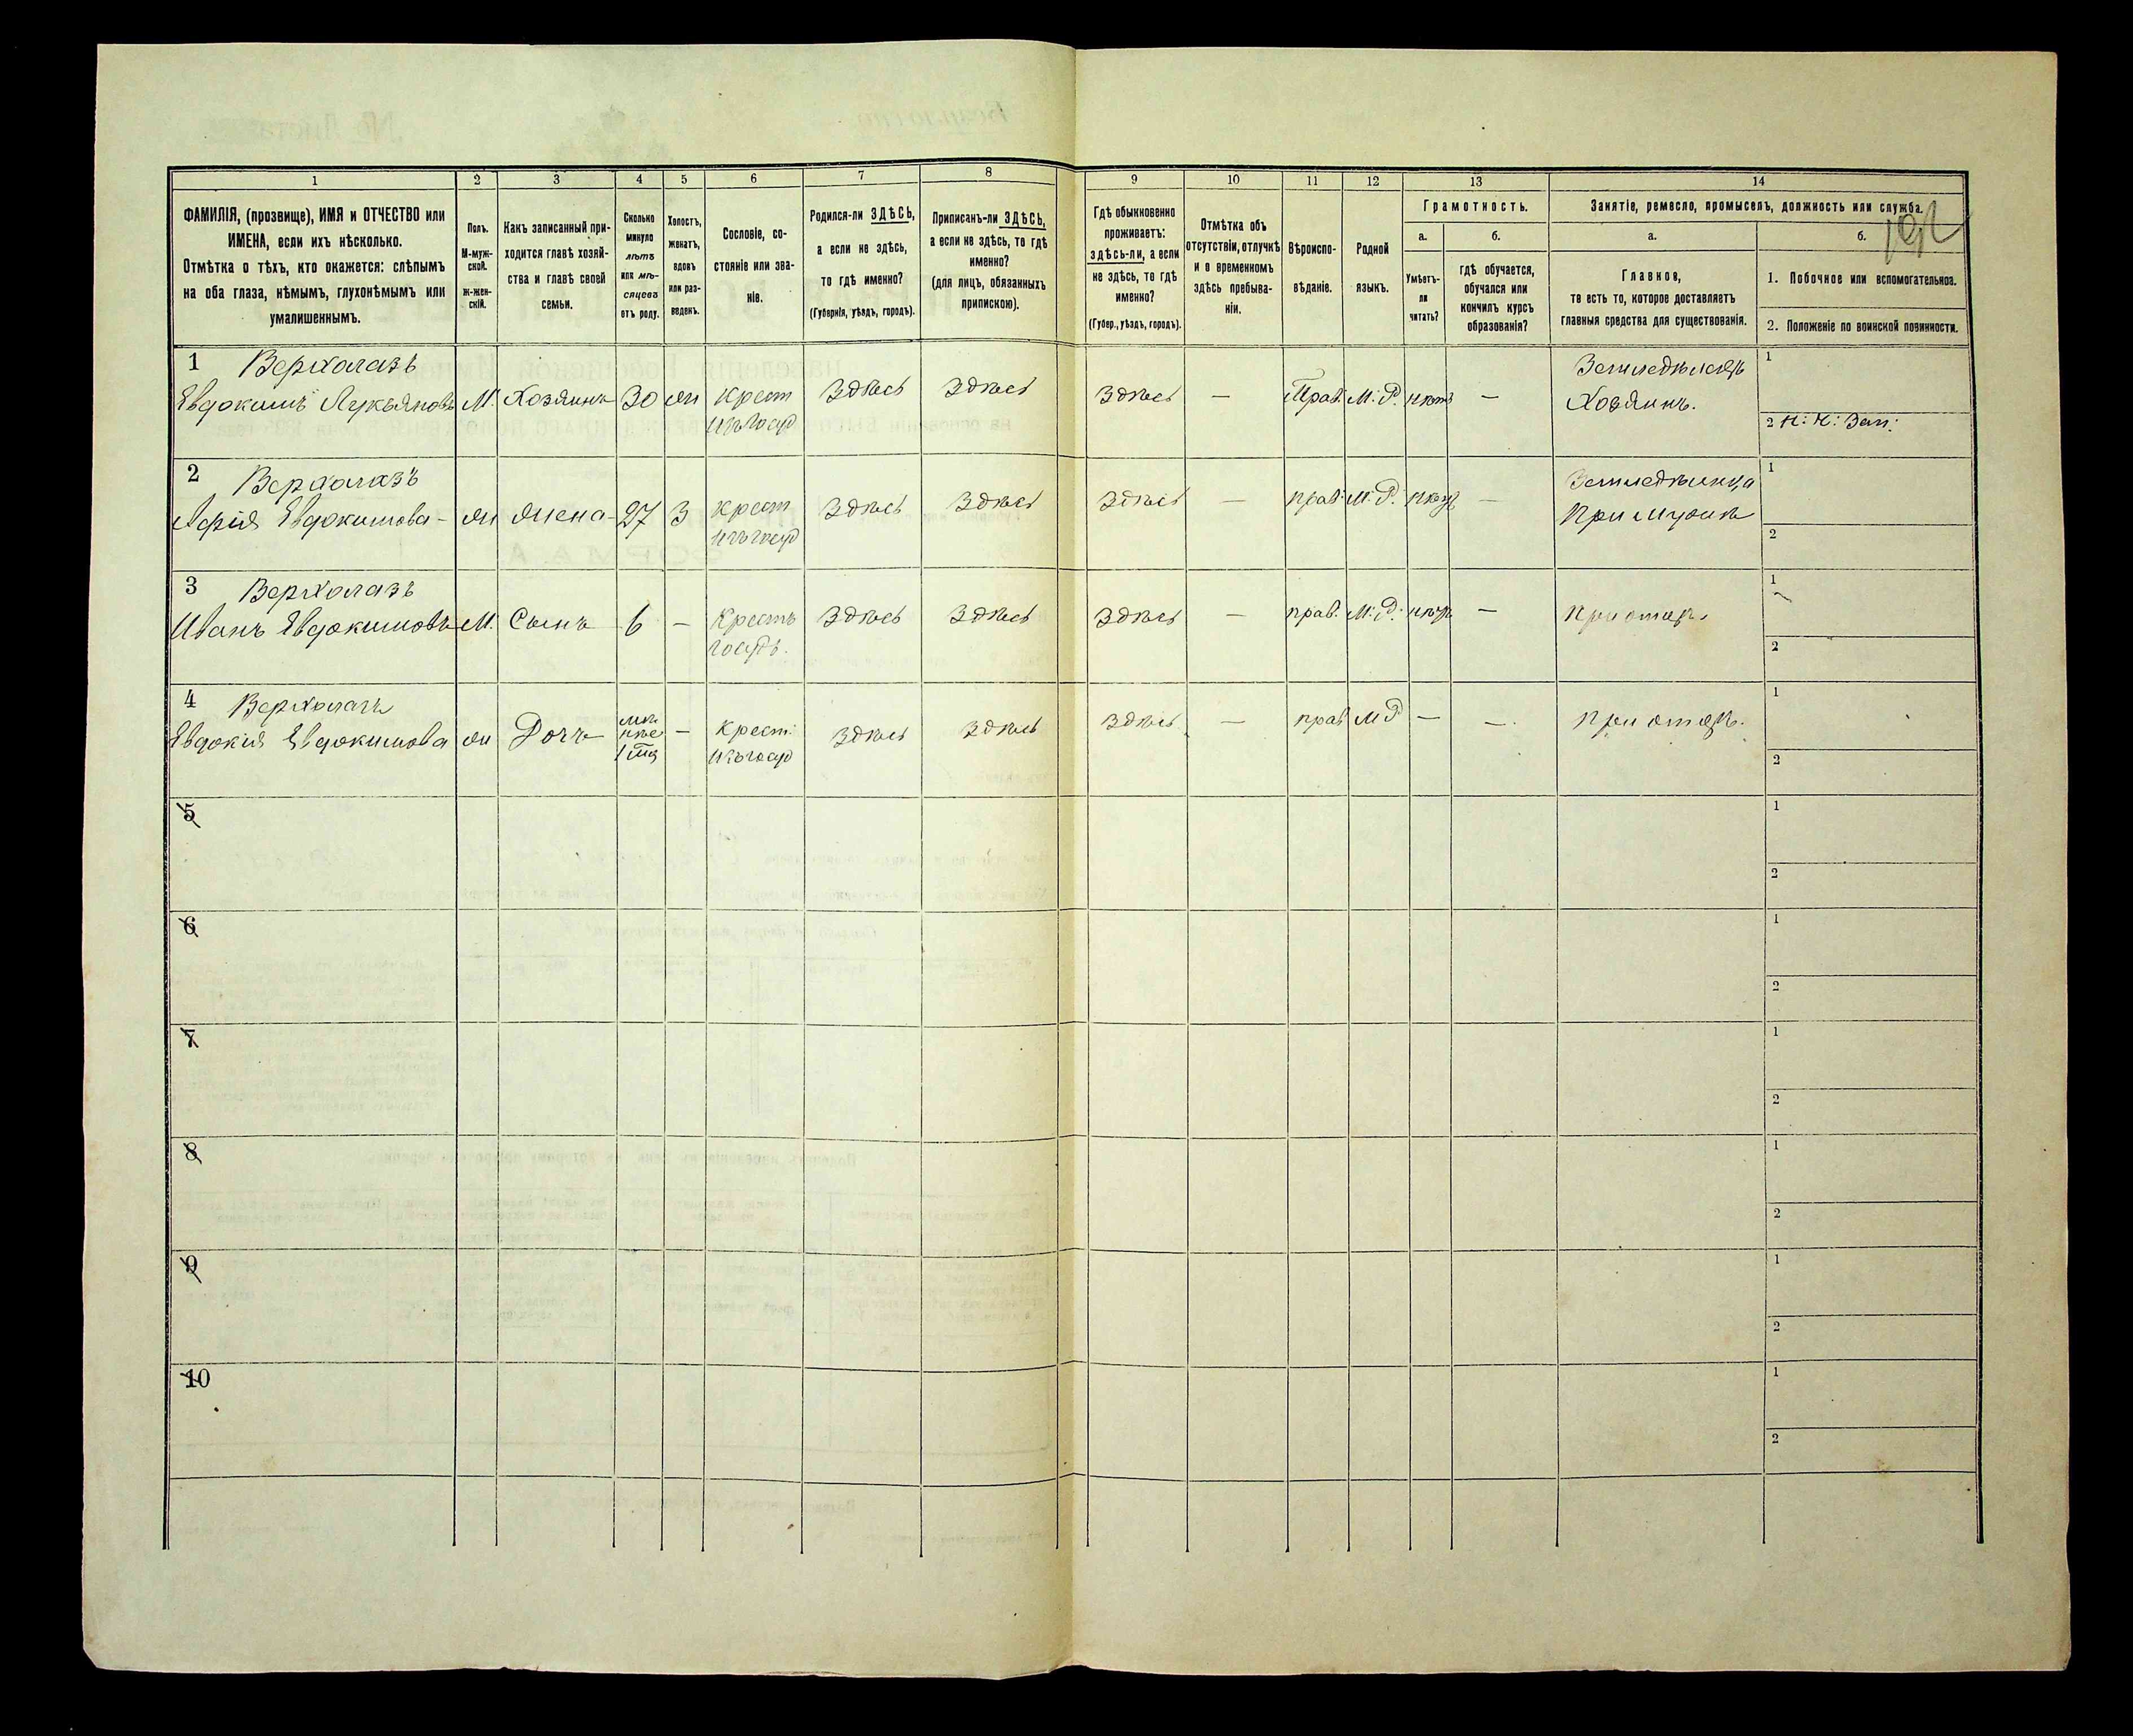 1 2 3 4 5 6 7 8 9 10 11 12 13 14
ФАМИЛІЯ, (прозвище), ИМЯ и ОТЧЕСТВО или
ИМЕНА, если ихъ нѣсколько.
Отмѣтка о тѣхъ, кто окажется: слѣпымъ
на оба глаза, нѣмымъ, глухонѣмымъ или
умалишеннымъ.
Полъ.
М-муж-
ской.
ж-жен-
скій.
Какъ записанный при-
ходится главѣ хозяй-
ства и главѣ своей
семьи.
Сколько
минуло
лѣтъ
или мѣ-
сяцевъ
отъ роду.
Холостъ,
женатъ,
вдовъ
или раз-
веденъ.
Сословіе, со-
стояніе или зва-
ніе.
Родился-ли ЗДѢСЬ,
а если не здѣсь,
то гдѣ именно?
(Губернія, уѣздъ, городъ).
Приписанъ-ли ЗДѢСЬ,
а если не здѣсь, то гдѣ
именно?
(для лицъ, обязанныхъ
припискою).
Гдѣ обыкновенно
проживаетъ:
здѣсь-ли, а если
не здѣсь, то гдѣ
именно?
(Губер., уѣздъ, городъ).
Отмѣтка объ
отсутствіи, отлучкѣ
и о временномъ
здѣсь пребыва-
ніи.
Вѣроиспо-
вѣданіе.
Родной
языкъ.
Грамотность.
а.
Умѣетъ-
ли
читать?
б.
гдѣ обучается,
обучался или
кончилъ курсъ
образованія?
Занятіе, ремесло, промыселъ, должность или служба.
а.
Главное,
то есть то, которое доставляетъ
главныя средства для существованія.
б.
1. Побочное или вспомогательное.
2. Положеніе по воинской повинности.
1 Верхолазъ
Евдокимъ Лукьяновъ М. Хозяинъ 30 ж Крест здѣсь здѣсь здѣсь — Прав. М. Р. нѣтъ — Земледѣлецъ 1
изъ госуд Хозяинъ. 2
2 Верхолазъ
Евдокимова ж жена 27 З Крест здѣсь здѣсь здѣсь — прав. М. Р. — 1
изъ госуд При мужѣ 2
3 Верхолазъ
Иванъ Евдокимовъ М. Сынъ 6 — Крестъ здѣсь здѣсь здѣсь — прав. М. Р. — При отцѣ. 1
госуд. 2
4 Верхолазъ
Евдокія Евдокимова ж Дочь — Крест. здѣсь здѣсь здѣсь — прав М Р — — При отцѣ. 1
изъ госуд 2
5 1
2
6 1
2
7 1
2
8 1
2
9 1
2
10 1
2